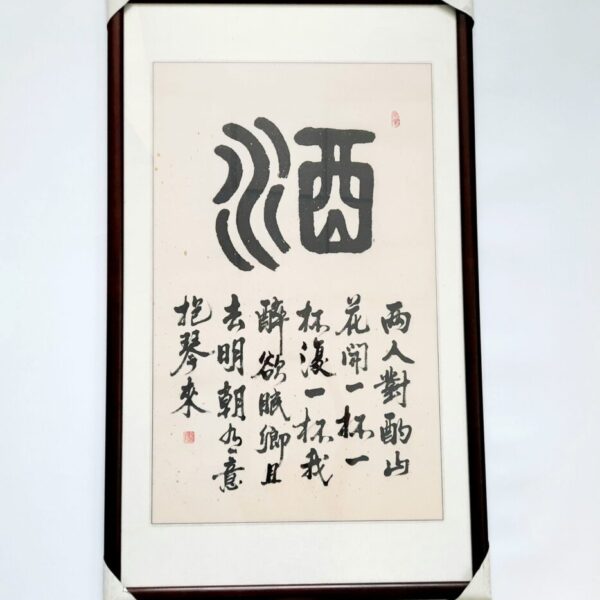 酒
兩人對酌山
花開一杯一
杯復一杯我
醉欲眠卿且
去明朝有意
抱琴來